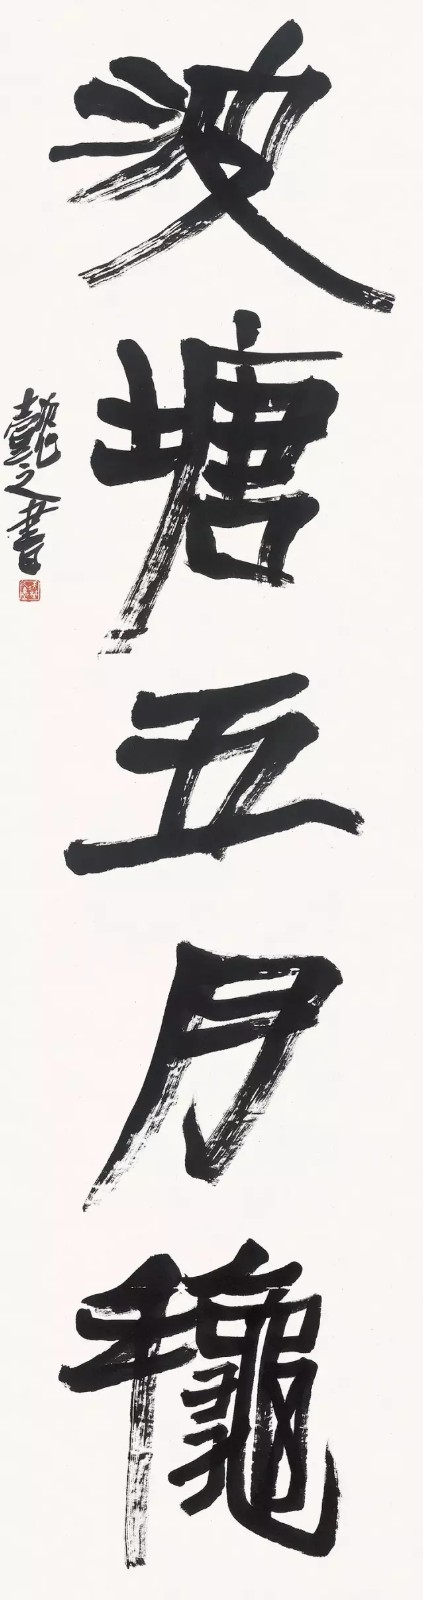 波塘五月龝
懿之書